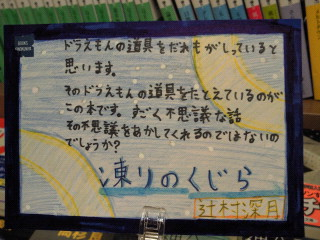 ドラえもんの道具をだれもがしっていると
思います。
そのドラえもんの道具をたとえているのが
この本です。すごく不思議な話
その不思議をあかしてくれるのではないの
でしょうか?
凍りのくじら
辻村深月